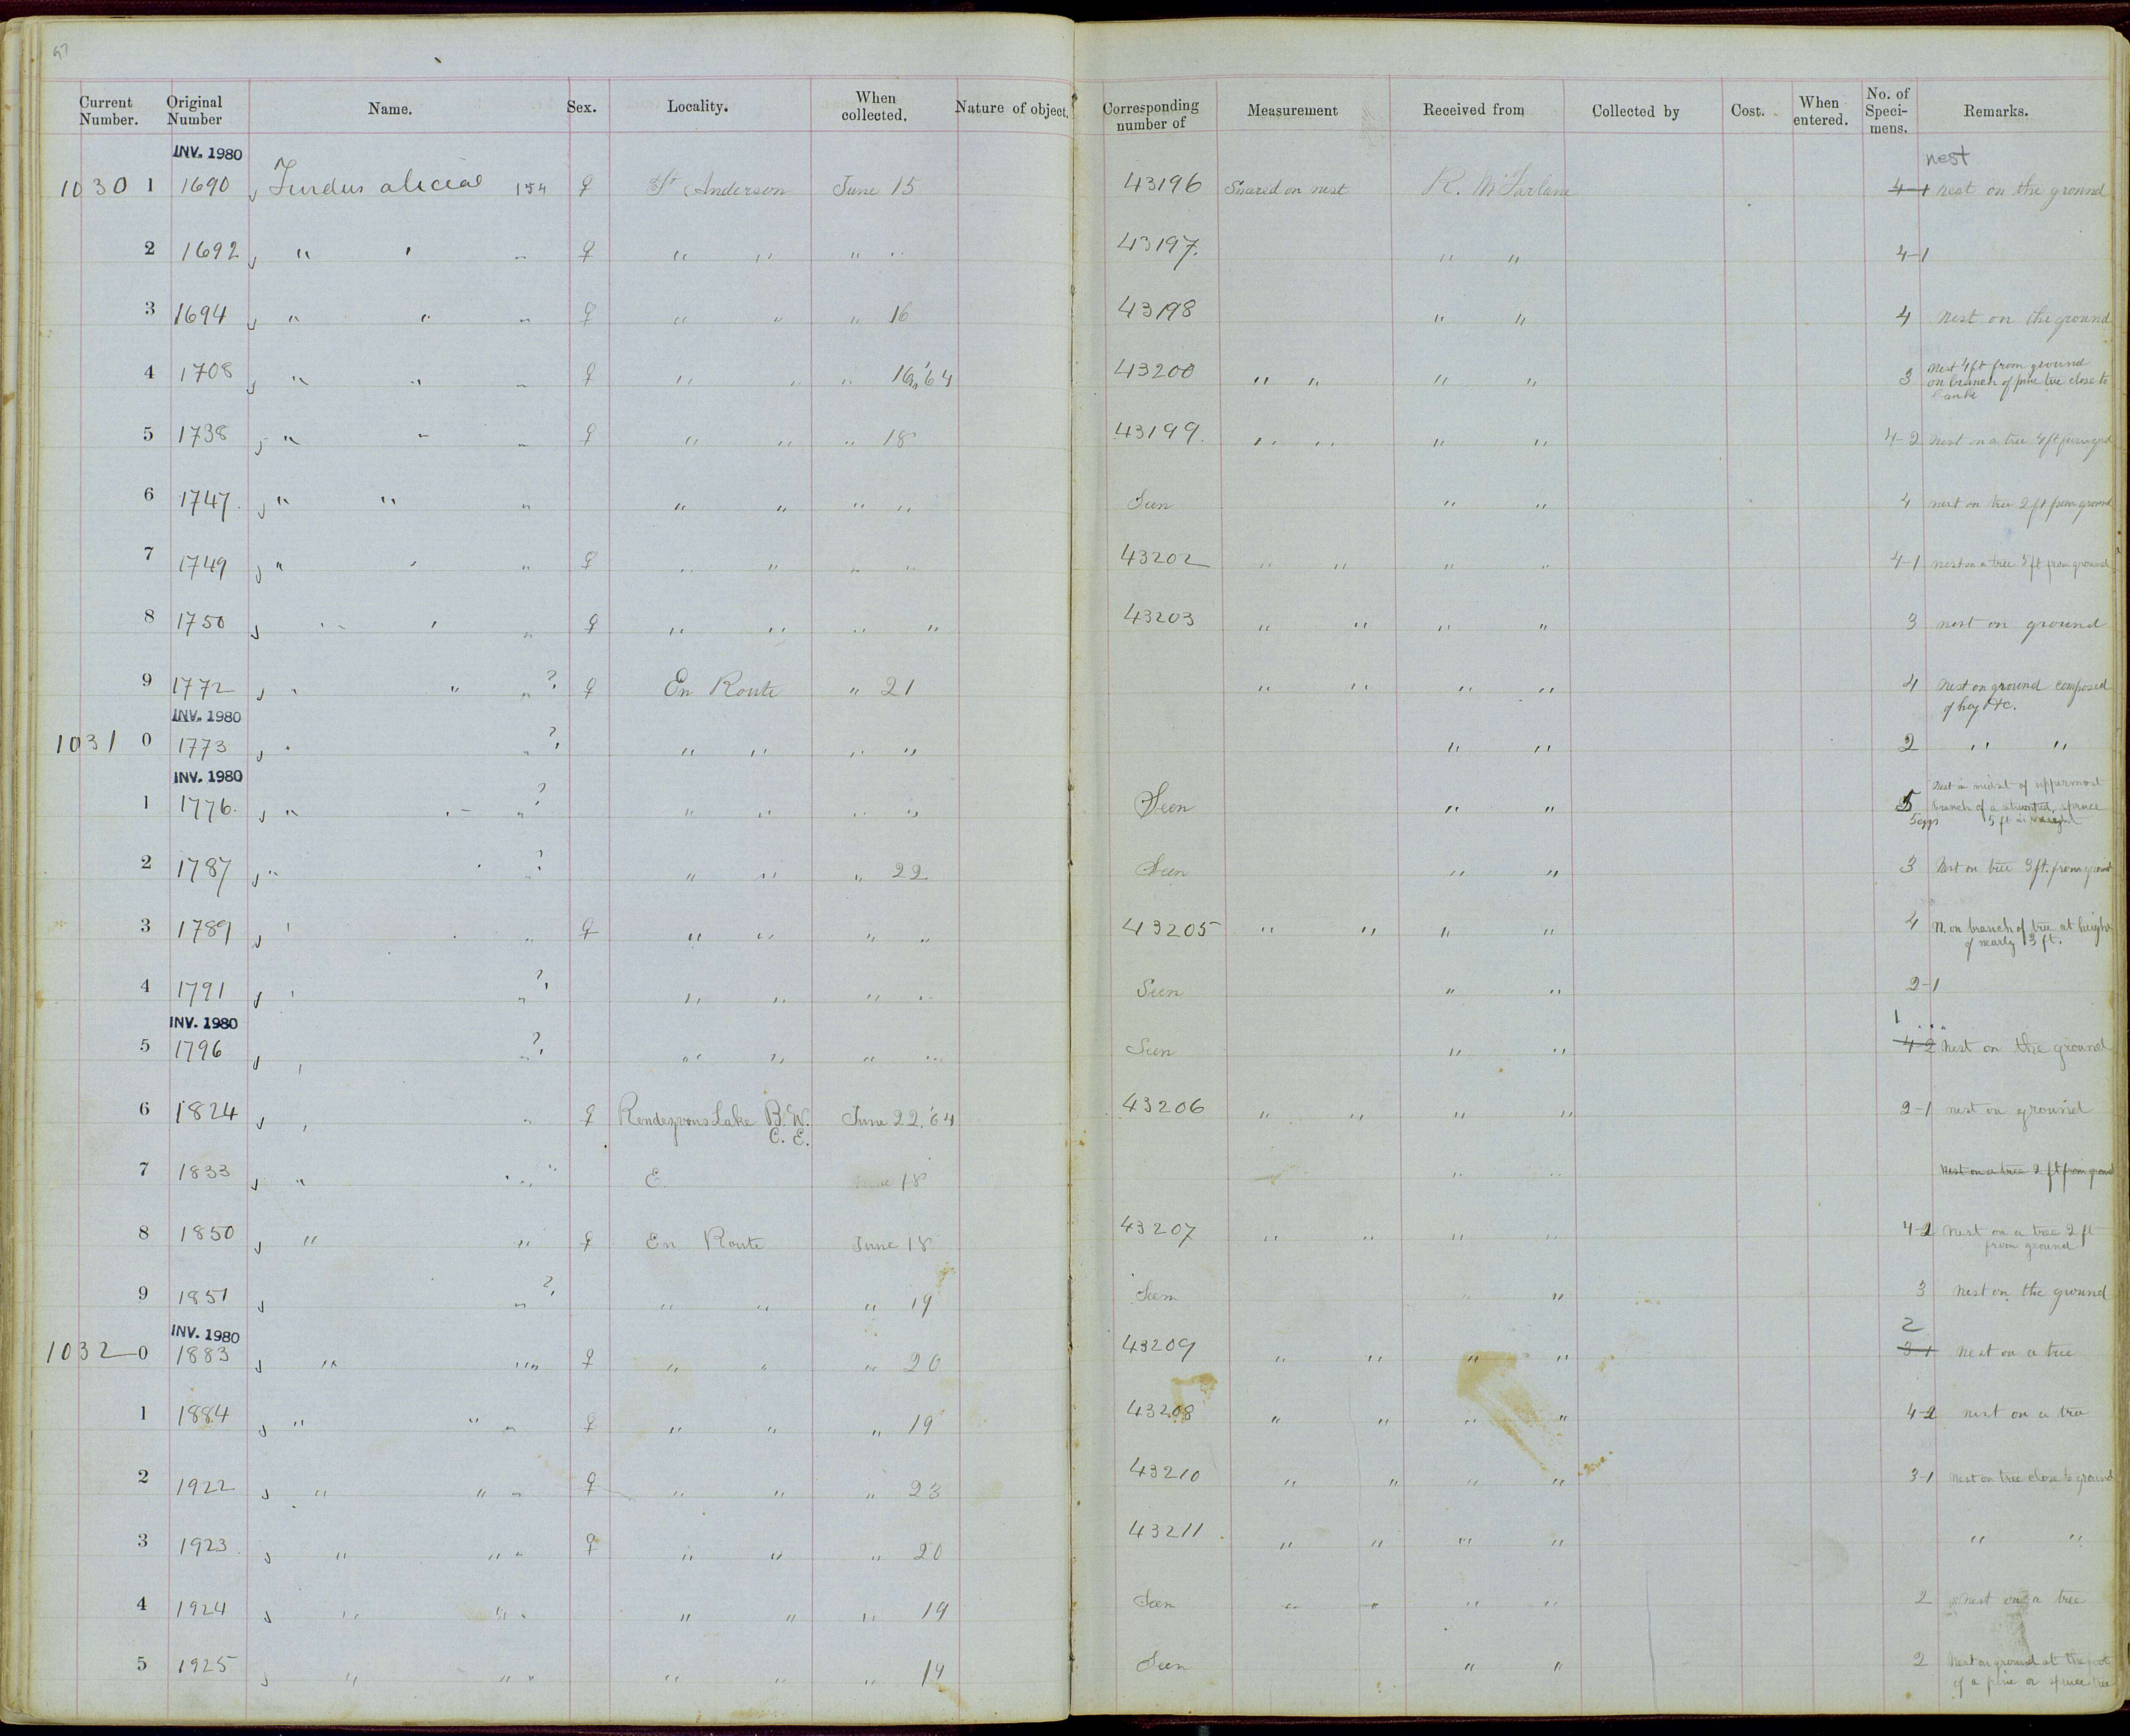 Current Number. Original Number Name. Sex. Locality. When collected. Nature of object. Corresponding number of Measurement Received from Collected by Cost. When entered. No. of Speci-mens. Remarks.
INV. 1980 nest
1030 1 1690 Turdus aliciae 154 ♀ Ft Anderson June 15 43196 Snared on nest R. McFarlane 4-1 nest on the ground
2 1692 " " " ♀ " " " " 43197. " " 4-1
3 1694 " " " ♀ " " " 16 43198 " " 4 Nest on the ground
4 1708 " " " ♀ " " " 16, '64 43200 " " " " 3 Nest 4 ft from ground
on branch of pine tree close to
bank
5 1738 " " " ♀ " " " 18 43199. " " " " 4-2 Nest on a tree 4 ft from grd
6 1747. " " " " " " " Seen " " 4 nest on tree 2 ft from ground
7 1749 " " " ♀ " " " " 43202 " " " " 4-1 nest on a tree 5 ft from ground
8 1750 " " " ♀ " " " " 43203 " " " " 3 nest on ground
9 1772 " " " ? ♀ En Route " 21 " " " " 4 Nest on ground composed
of hay &c.
INV. 1980
1031 0 1773 " " ? " " " " " " 2 " "
INV. 1980
1 1776. " " " ? " " " " Seen " " 5 Nest in midst of uppermost
branch of a stunted spruce
5 eggs 5 ft in height
2 1787 " " " ? " " " 22 Seen " " 3 Nest on tree 3 ft. from ground
3 1789 " " " ♀ " " " " 43205 " " " " 4 N. on branch of tree at height
of nearly 3 ft.
4 1791 " " ? " " " " Seen " " 2-1
INV. 1980 1
5 1796 " " ? " " " " Seen " " 4-2 Nest on the ground
6 1824 " " ♀ Rendezvous Lake B. W. June 22, '64 43206 " " " " 2-1 nest on ground
C. E.
7 1833 " " " E 18 " " Nest on a tree 2 ft from ground
8 1850 " " ♀ En Route June 18 43207 " " " " 4-2 Nest on a tree 2 ft
from ground
9 1851 " ? " " " 19 Seen " " 3 Nest on the ground
INV. 1980 2
1032 0 1883 " " " ♀ " " " 20 43209 " " " " 3-1 nest on a tree
1 1884 " " " ♀ " " " 19 43208 " " " " 4-2 nest on a tree
2 1922 " " " ♀ " " " 23 43210 " " " " 3-1 Nest on tree close to ground
3 1923 " " " ♀ " " " 20 43211 " " " " " "
4 1924 " " " " " " 19 Seen " " " " 2 Nest on a tree
5 1925 " " " " " " 19 Seen " " 2 Nest on ground at the foot
of a pine or spruce tree